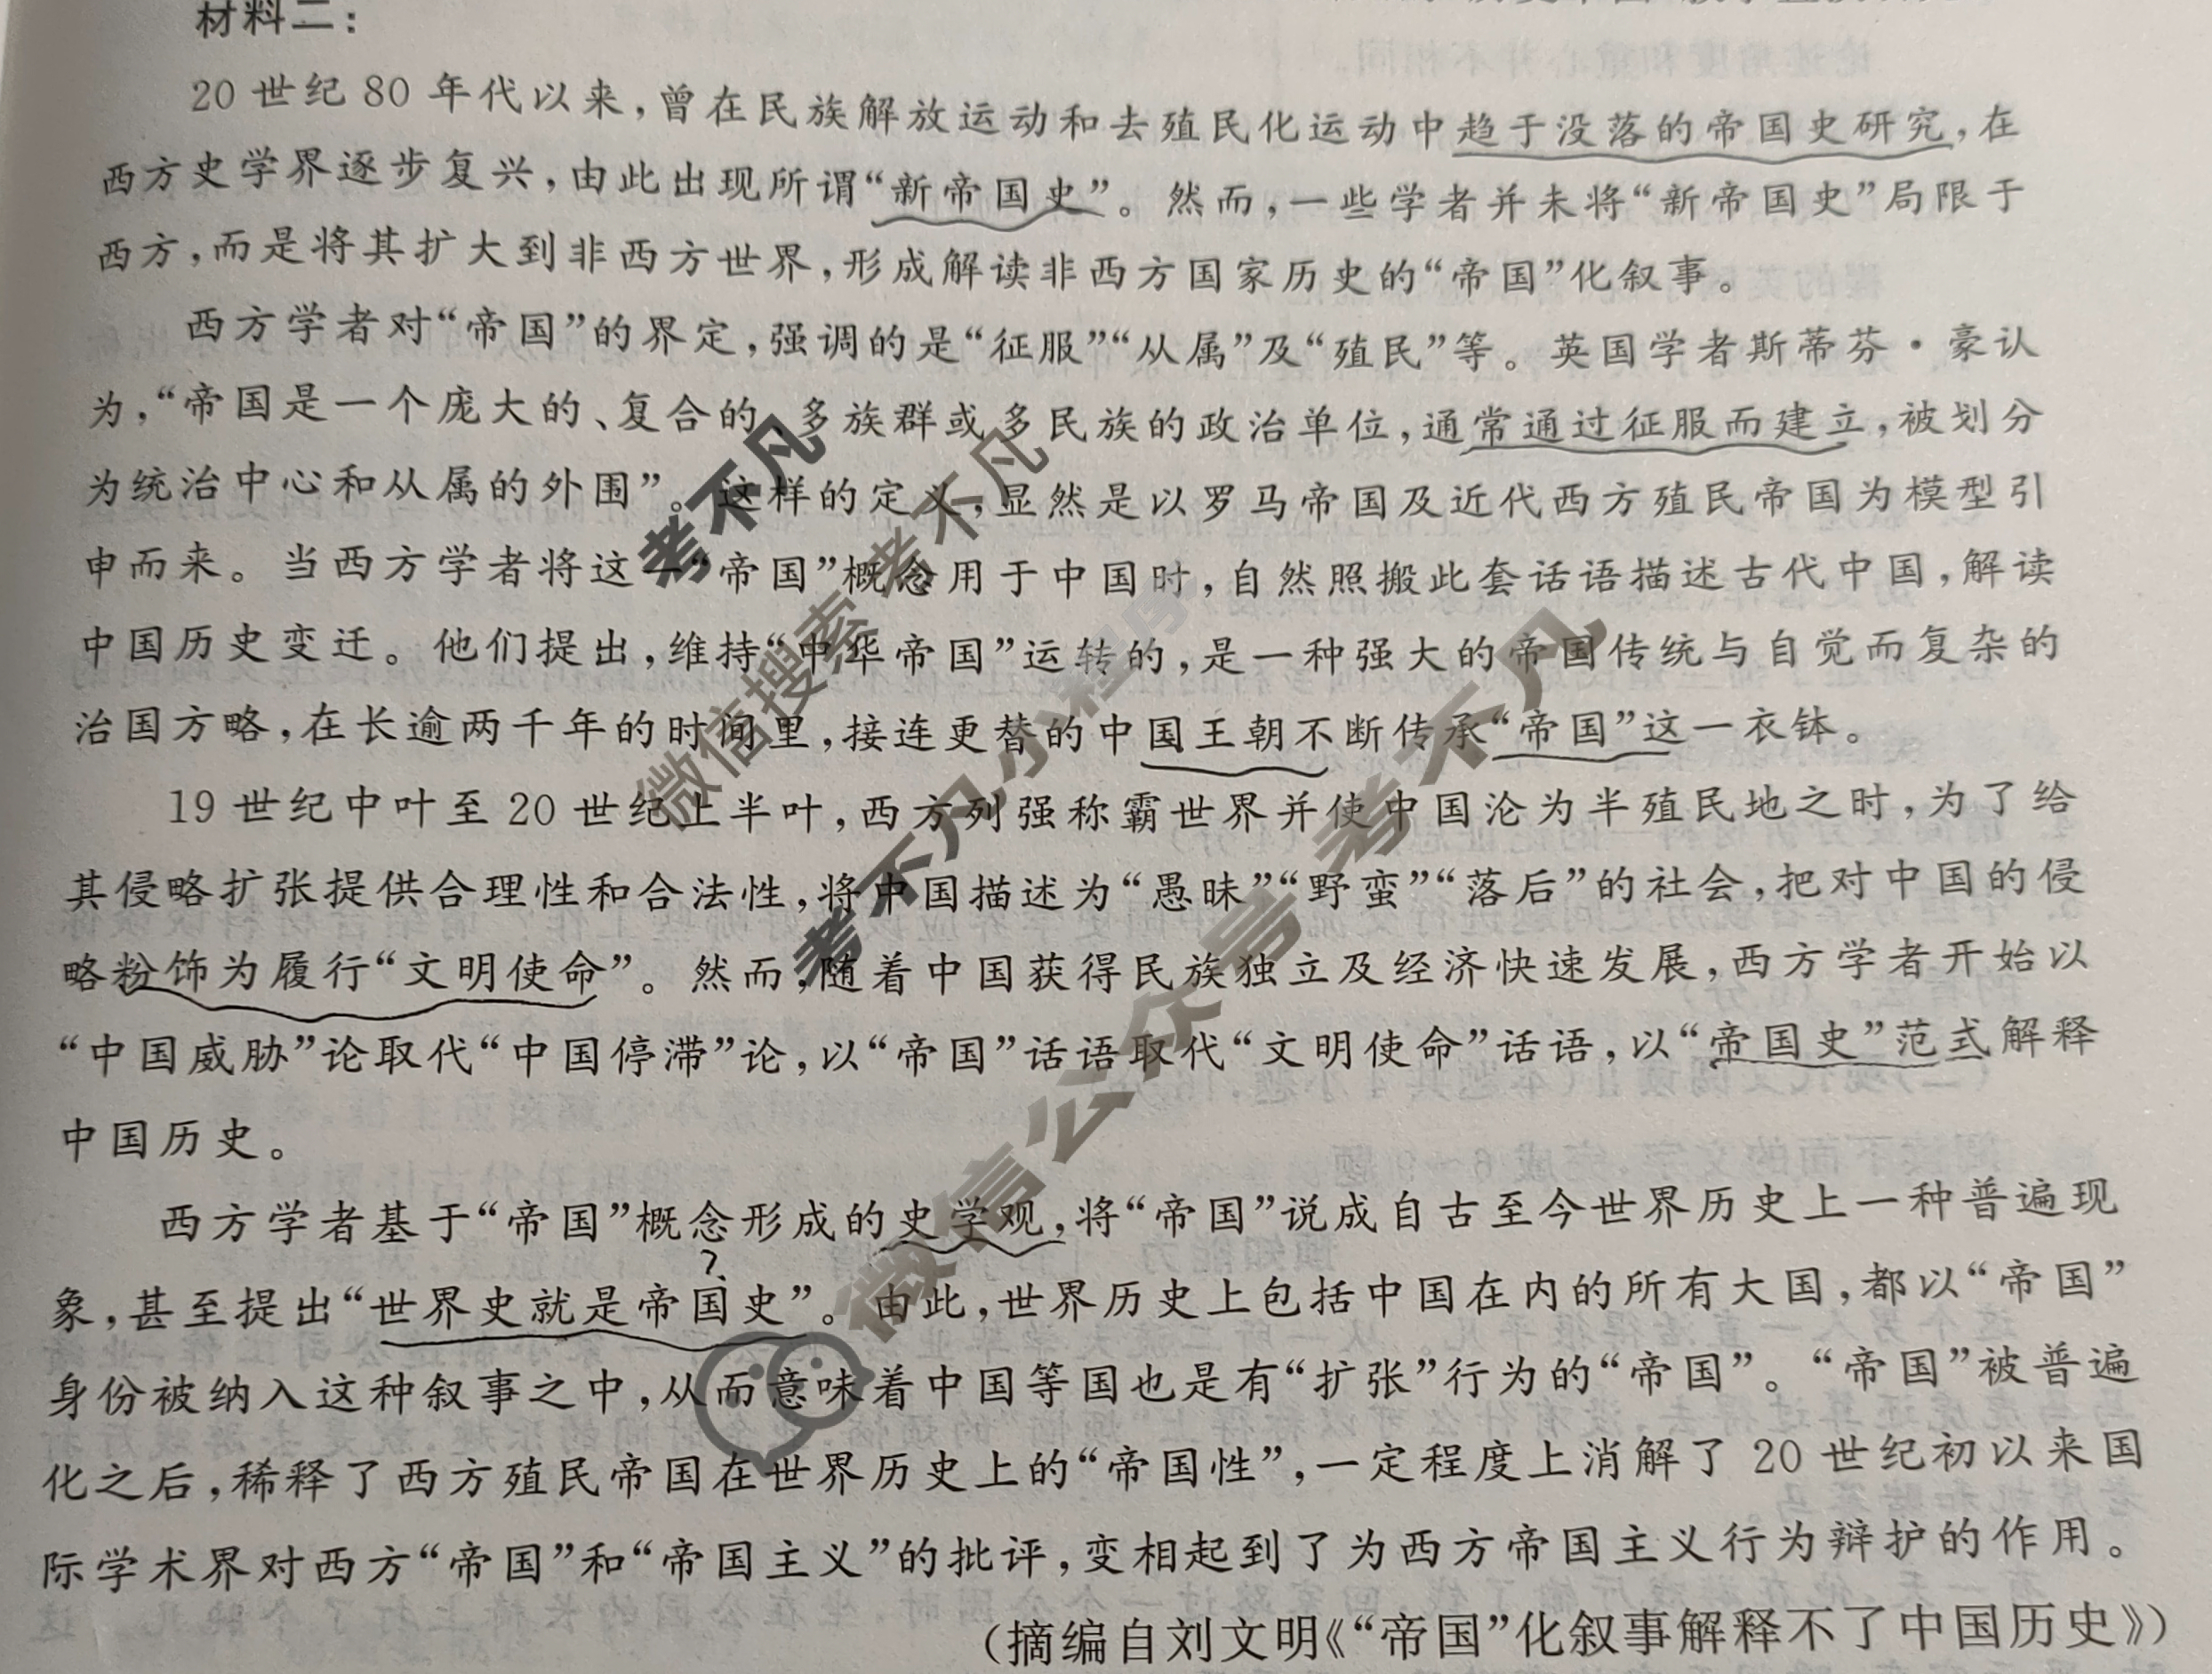 材料二：
20 世纪 80 年代以来，曾在民族解放运动和去殖民化运动中趋于没落的帝国史研究，在
西方史学界逐步复兴，由此出现所谓“新帝国史”。然而，一些学者并未将“新帝国史”局限于
西方，而是将其扩大到非西方世界，形成解读非西方国家历史的“帝国”化叙事。
西方学者对“帝国”的界定，强调的是“征服”“从属”及“殖民”等。英国学者斯蒂芬·豪认
为，“帝国是一个庞大的、复合的、多族群或多民族的政治单位，通常通过征服而建立，被划分
为统治中心和从属的外围”。这样的定义，显然是以罗马帝国及近代西方殖民帝国为模型引
申而来。当西方学者将这一“帝国”概念用于中国时，自然照搬此套话语描述古代中国，解读
中国历史变迁。他们提出，维持“中华帝国”运转的，是一种强大的帝国传统与自觉而复杂的
治国方略，在长逾两千年的时间里，接连更替的中国王朝不断传承“帝国”这一衣钵。
19 世纪中叶至 20 世纪上半叶，西方列强称霸世界并使中国沦为半殖民地之时，为了给
其侵略扩张提供合理性和合法性，将中国描述为“愚昧”“野蛮”“落后”的社会，把对中国的侵
略粉饰为履行“文明使命”。然而，随着中国获得民族独立及经济快速发展，西方学者开始以
“中国威胁”论取代“中国停滞”论，以“帝国”话语取代“文明使命”话语，以“帝国史”范式解释
中国历史。
西方学者基于“帝国”概念形成的史学观，将“帝国”说成自古至今世界历史上一种普遍现
?
象，甚至提出“世界史就是帝国史”。由此，世界历史上包括中国在内的所有大国，都以“帝国”
身份被纳入这种叙事之中，从而意味着中国等国也是有“扩张”行为的“帝国”。“帝国”被普遍
化之后，稀释了西方殖民帝国在世界历史上的“帝国性”，一定程度上消解了 20 世纪初以来国
际学术界对西方“帝国”和“帝国主义”的批评，变相起到了为西方帝国主义行为辩护的作用。
（摘编自刘文明《“帝国”化叙事解释不了中国历史》）
考不凡
微信搜索 考不凡
考不凡小程序
微信公众号 考不凡